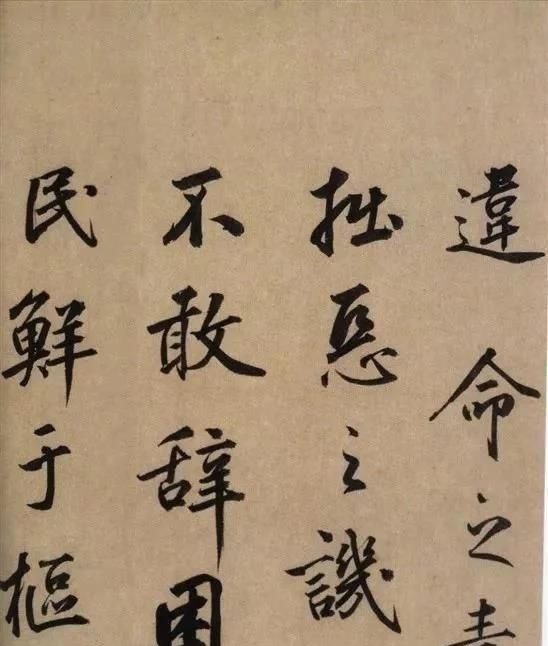 違命之責
拙惡之譏
不敢辞困
民鮮于樞